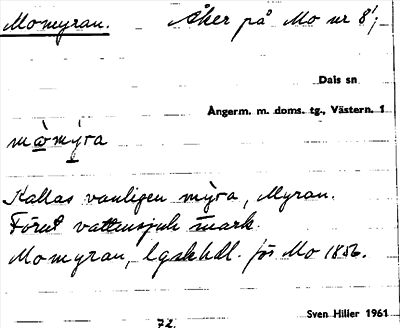 Momyran. Åker på Mo nr 8¹;
Dals sn
Ångerm. m. doms. tg., Västern. 1
mòmỳra
Kallas vanligen mỳra, Myran.
Förut vattensjuk mark.
Momyran, lgskhdl. för Mo 1856.
72.
Sven Hiller 1961